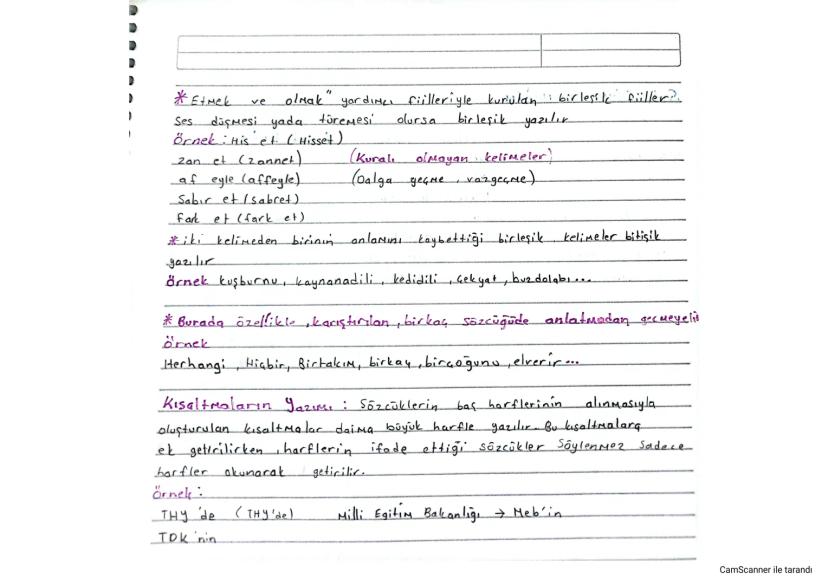 * Etmek ve olmak" yardımcı fiilleriyle kurulan birleşik fiiller?
Ses düşmesi yada türemesi olursa birleşik yazılır
Örnek: His et (Hisset)
zan et (zannet) (Kuralı olmayan kelimeler)
af eyle (affeyle) (Dalga geçme, vazgeçme)
Sabır et (sabret)
Fark et (fark et)
* iki kelimeden birinin anlamını kaybettiği birleşik kelimeler bitişik
yazılır
Örnek kuşburnu, kaynanadili, kedidili, Çekyat, buzdolabı...
* Burada özellikle, karıştırılan, birkaç sözcüğüde anlatmadan geçmeyelim
Örnek
Herhangi, Hiçbir, Birtakım, birkaç, birçoğunu, elverir...
Kısaltmaların Yazımı: Sözcüklerin baş harflerinin alınmasıyla
oluşturulan kısaltmalar daima büyük harfle yazılır. Bu kısaltmalara
ek getirilirken, harflerin ifade ettiği sözcükler Söylenmez Sadece
harfler okunarak getirilir.
Örnek:
THY'de (THY'de) Milli Egitim Bakanlığı → Meb'in
TDK'nin
CamScanner ile tarandı